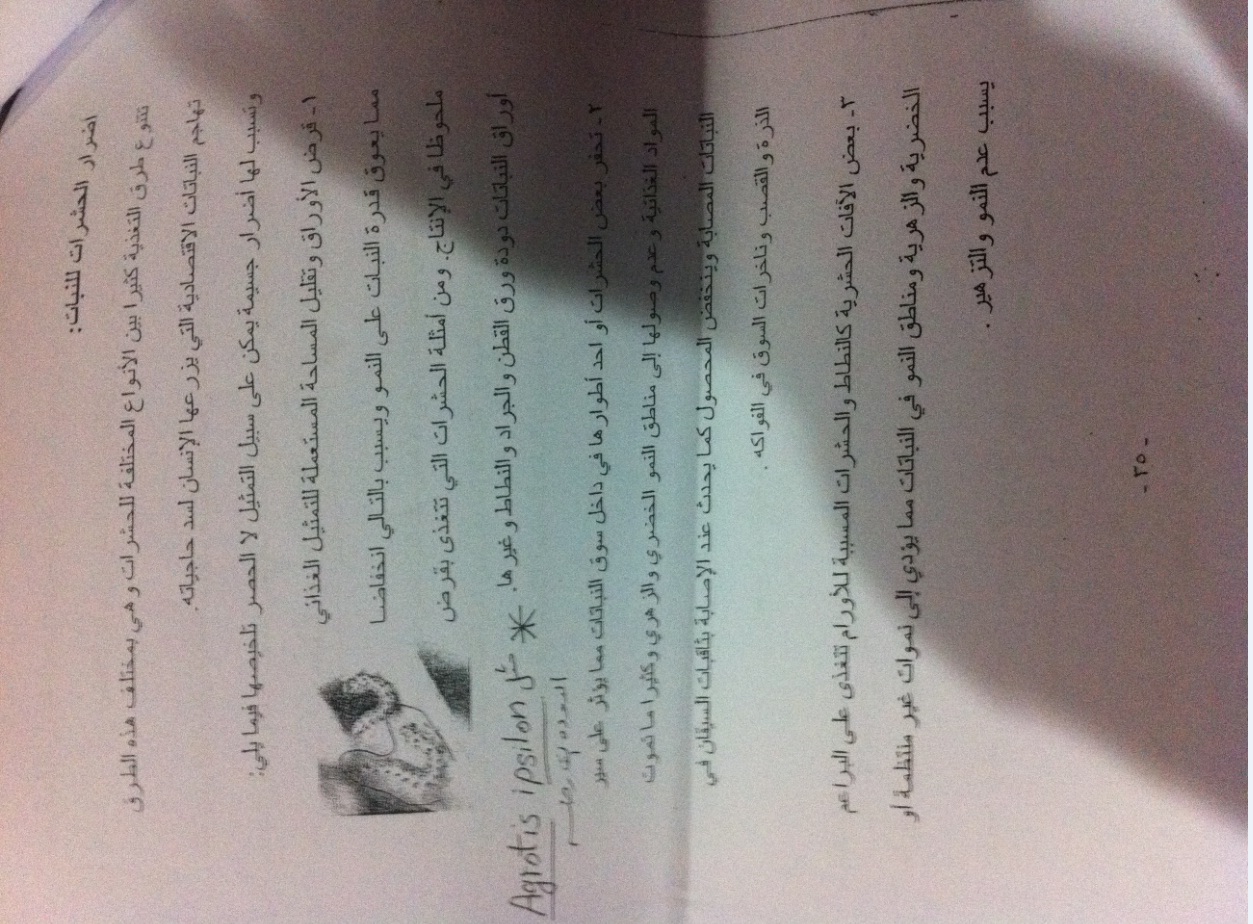 اضرار الحشرات للنبات:
تتنوع طرق التغذية كثيرا بين الأنواع المختلفة للحشرات وهي بمختلف هذه الطرق
تهاجم النباتات الاقتصادية التي يزرعها الإنسان لسد حاجياته.
وتسبب لها أضرار جسيمة يمكن على سبيل التمثيل لا الحصر تلخيصها فيما يلي:
١- قرض الأوراق وتقليل المساحة المستعملة للتمثيل الغذائي
مما يعوق قدرة النبات على النمو ويسبب بالتالي انخفاضا
ملحوظا في الإنتاج. ومن أمثلة الحشرات التي تتغذى بقرض
أوراق النباتات دودة ورق القطن والجراد والنطاط وغيرها. * مثل Agrotis ipsilon
٢- تحفر بعض الحشرات أو احد أطوارها في داخل سوق النباتات مما يؤثر على سير
المواد الغذائية وعدم وصولها إلى مناطق النمو الخضري والزهري وكثيرا ما تموت
النباتات المصابة وينخفض المحصول كما يحدث عند الإصابة بثاقبات السيقان في
الذرة والقصب وناخرات السوق في الفواكه .
٣- بعض الآفات الحشرية كالنطاط والحشرات المسببة للأورام تتغذى على البراعم
الخضرية والزهرية ومناطق النمو في النباتات مما يؤدي إلى نموات غير منتظمة أو
يسبب عدم النمو والتزهير .
- ٢٥ -